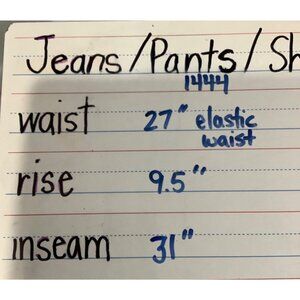 Jeans/Pants/Sh
1444
waist 27" elastic
waist
rise 9.5"
inseam 31"